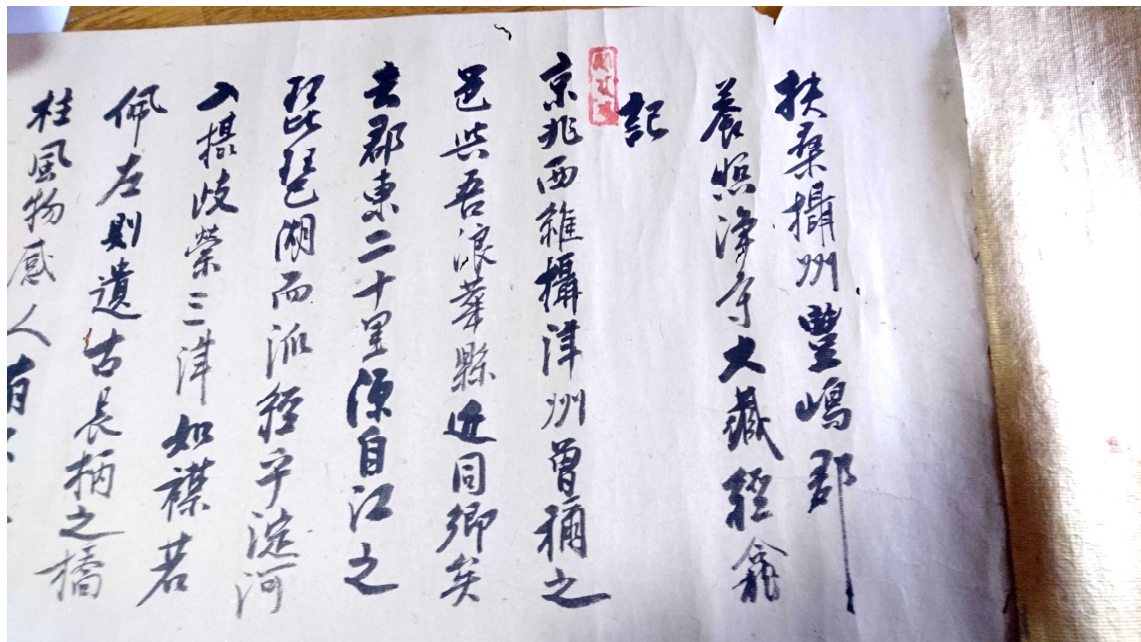 扶桑攝州豐嶋郡
養照淨寺大藏經龕
記
京兆西維攝津州曾稱之
邑与吾浪華縣近同鄉矣
去郡東二十里源自江之
琵琶湖而派經宇淀河
入攝歧榮三津如襟若
佩左則遺古長柄之橋
柱風物感人有